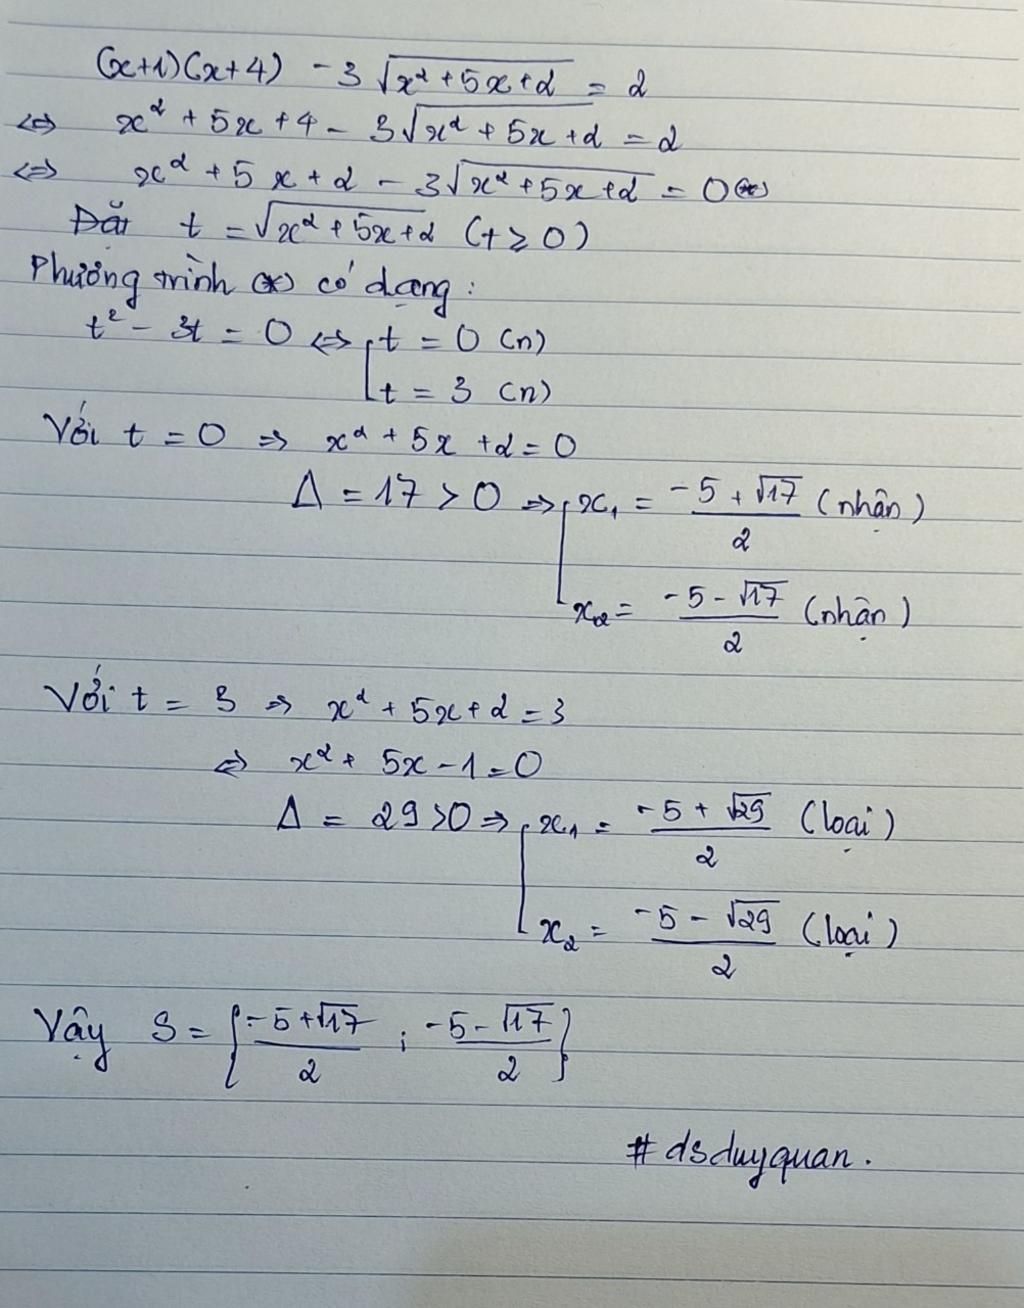 (x+1)(x+4) - 3√(x² + 5x + 2) = 2
<=> x² + 5x + 4 - 3√(x² + 5x + 2) = 2
<=> x² + 5x + 2 - 3√(x² + 5x + 2) = 0 (*)
Đặt t = √(x² + 5x + 2) (t ≥ 0)
Phương trình (*) có dạng :
t² - 3t = 0 <=> [ t = 0 (n)
t = 3 (n)
Với t = 0 => x² + 5x + 2 = 0
Δ = 17 > 0 => [ x₁ = (-5 + √17)/2 (nhận)
x₂ = (-5 - √17)/2 (nhận)
Với t = 3 => x² + 5x + 2 = 3
<=> x² + 5x - 1 = 0
Δ = 29 > 0 => [ x₁ = (-5 + √29)/2 (loại)
x₂ = (-5 - √29)/2 (loại)
Vậy S = { (-5 + √17)/2 ; (-5 - √17)/2 }
# dsduyquan.